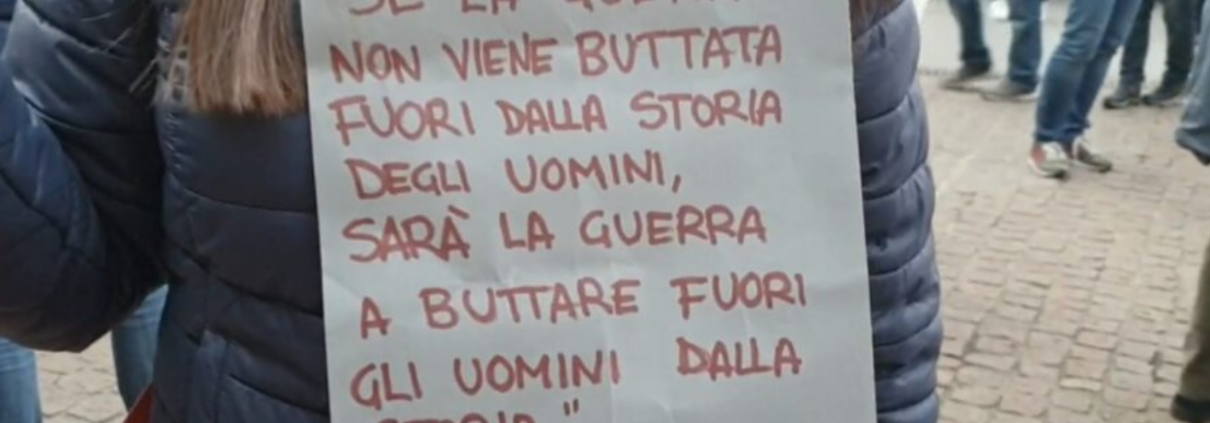 SE LA GUERRA
NON VIENE BUTTATA
FUORI DALLA STORIA
DEGLI UOMINI,
SARÀ LA GUERRA
A BUTTARE FUORI
GLI UOMINI DALLA
STORIA"